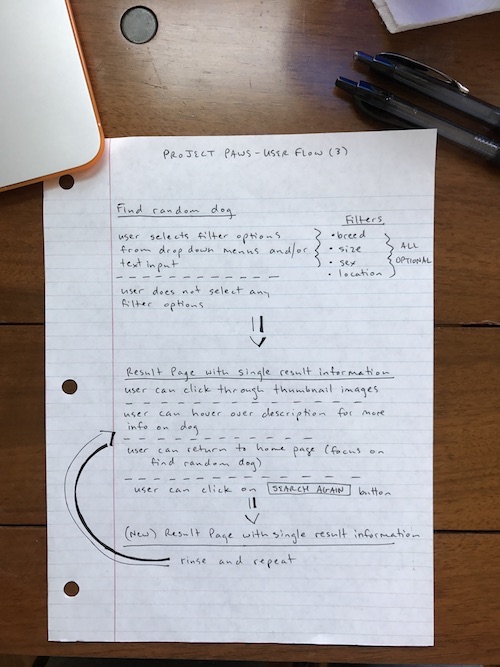 PROJECT PAWS - USER FLOW (3)
Find random dog
user selects filter options
from drop down menus and/or
text input
Filters
• breed
• size
• sex
• location
ALL
OPTIONAL
user does not select any
filter options
Result Page with single result information
user can click through thumbnail images
user can hover over description for more
info on dog
user can return to home page (focus on
find random dog)
user can click on SEARCH AGAIN button
(New) Result Page with single result information
rinse and repeat